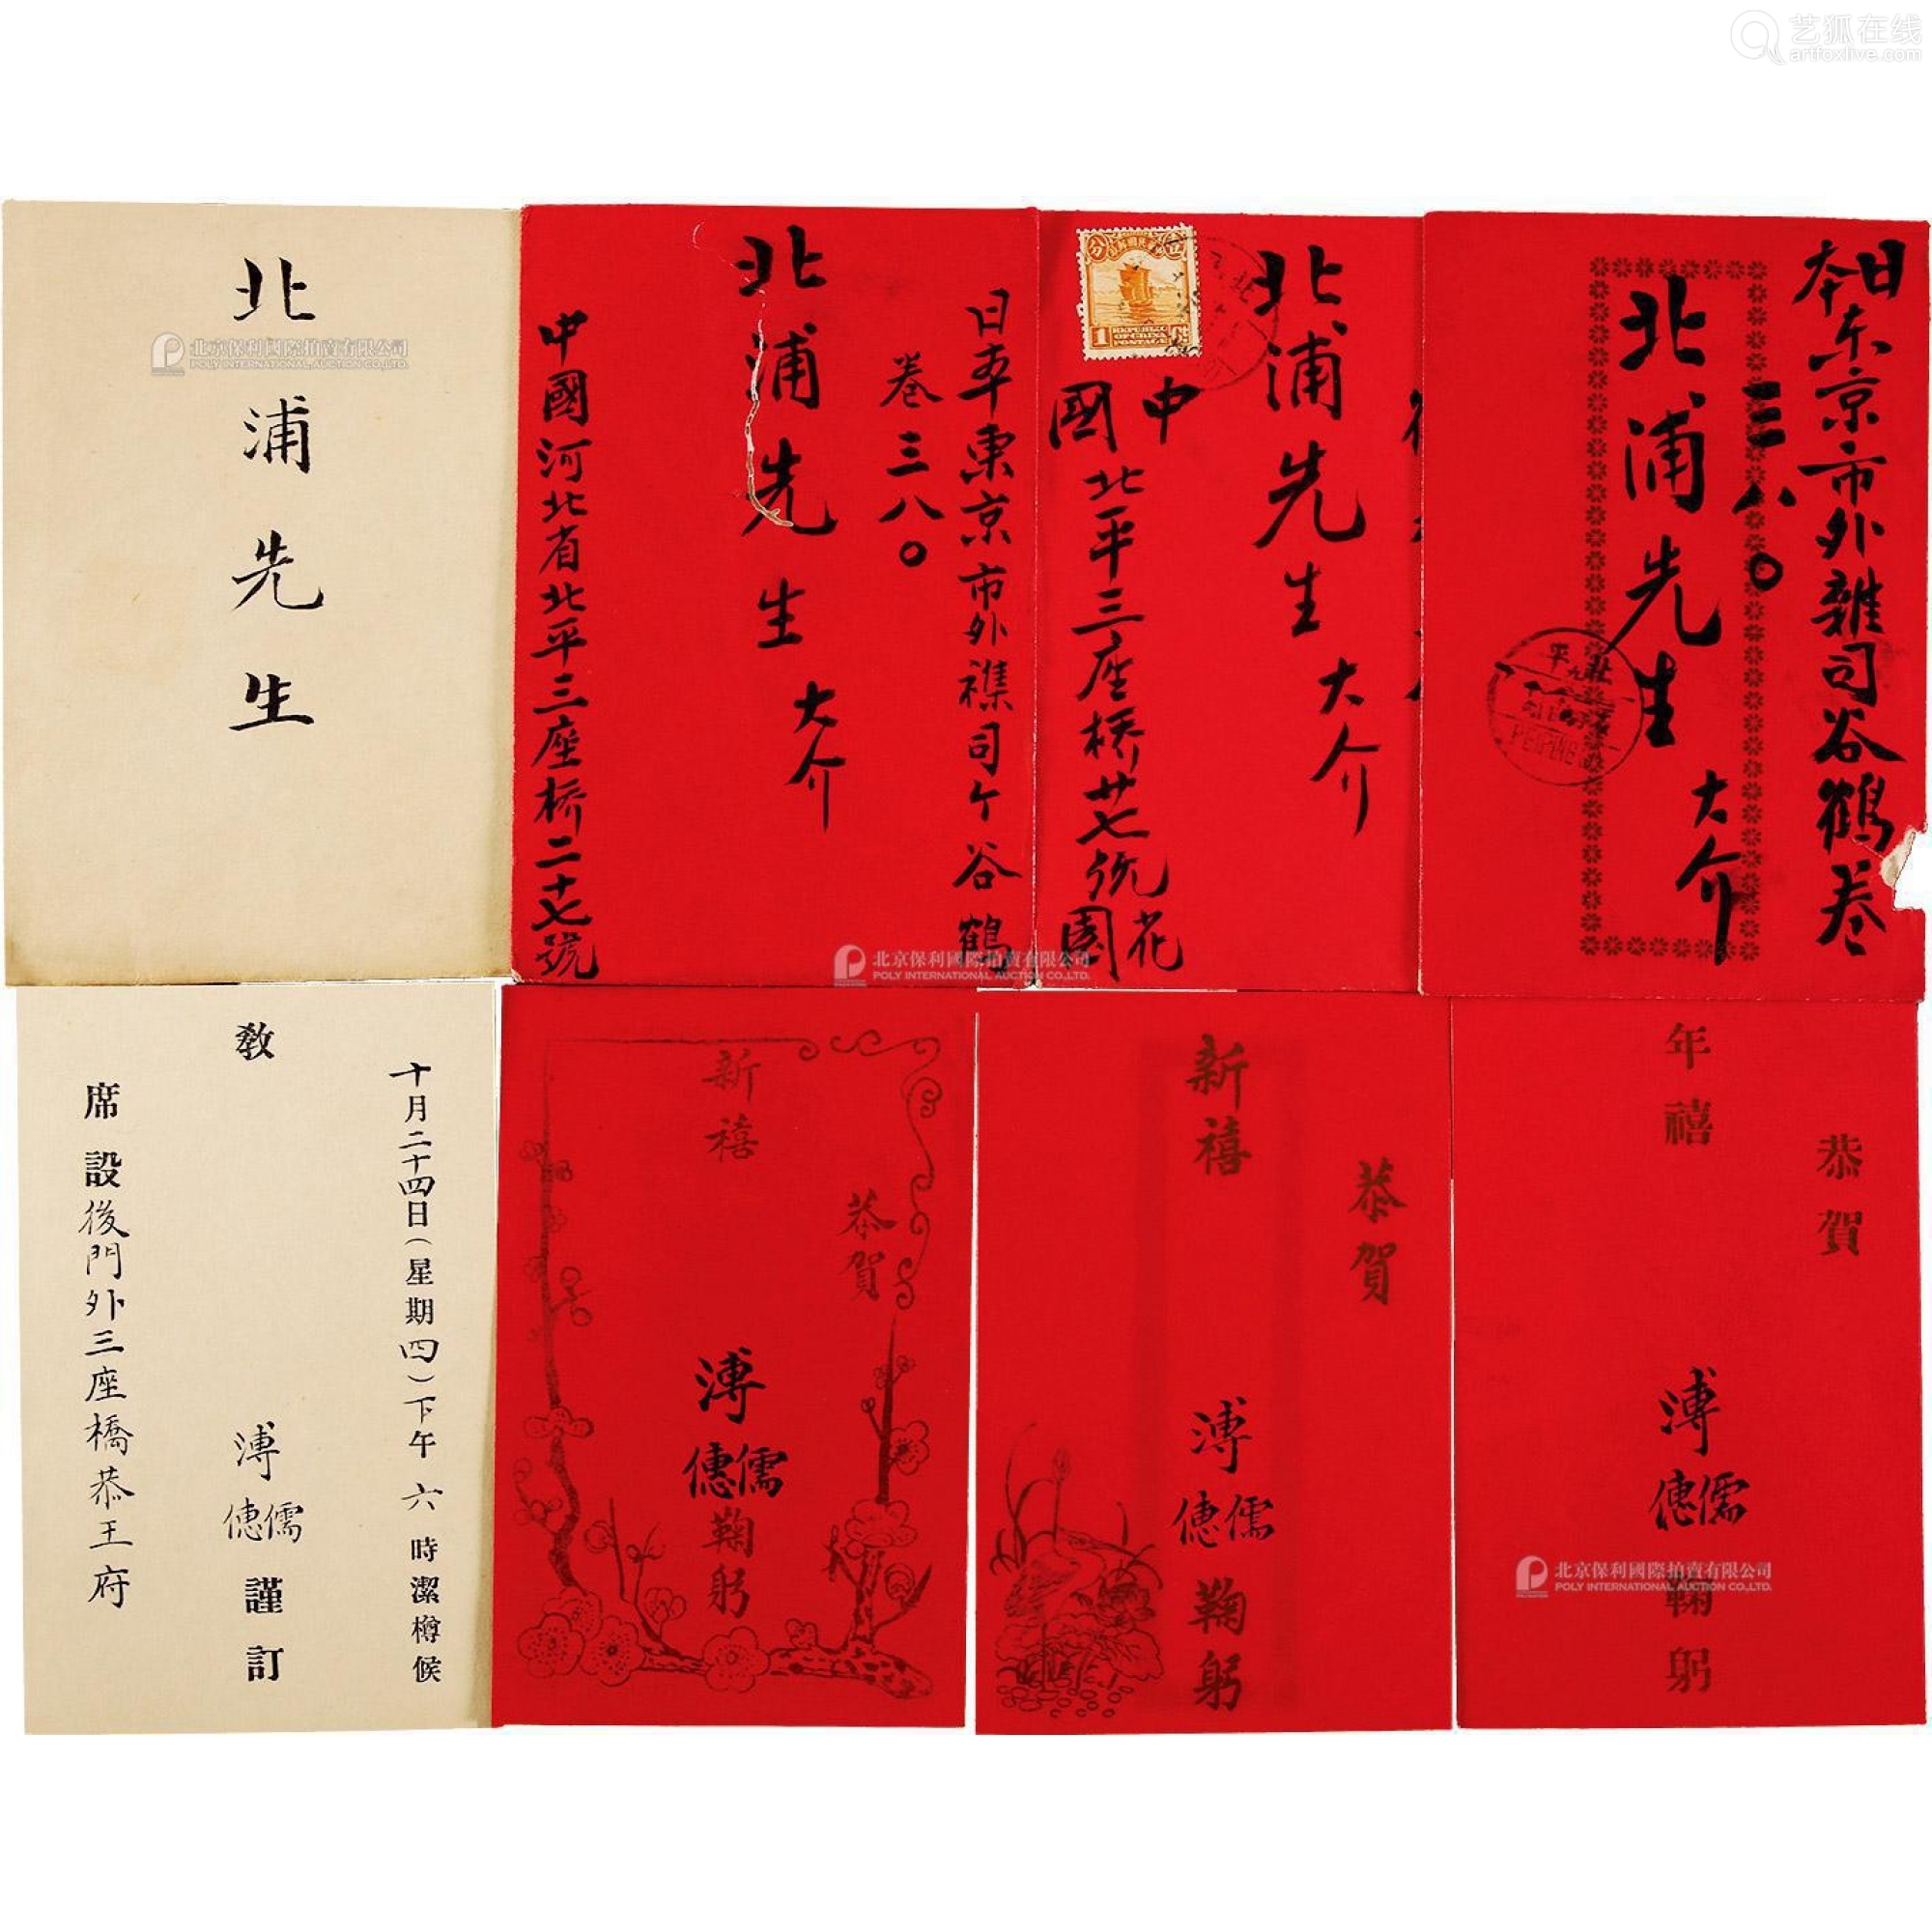 艺狐在线
artfoxlive.com
北浦先生
北京保利國際拍賣有限公司
POLY INTERNATIONAL AUCTION CO.,LTD.
日本東京市外襍司ケ谷鶴
卷三八〇
北浦先生
大介
中國河北省北平三座橋二十七號
1
REPUBLIC
OF CHINA
POSTAGE
北浦先生
大介
中國
北平三座橋廿七號花園
日本东京市外雜司谷鶴卷
三八〇
北浦先生
大介
北京保利國際拍賣有限公司
POLY INTERNATIONAL AUCTION CO.,LTD.
十月二十四日(星期四)下午六時潔樽候
教
溥儒
僡
謹訂
席設後門外三座橋恭王府
恭賀
新禧
溥儒
僡
鞠躬
恭賀
新禧
溥儒
僡
鞠躬
恭賀
年禧
溥儒
僡
鞠躬
北京保利國際拍賣有限公司
POLY INTERNATIONAL AUCTION CO.,LTD.